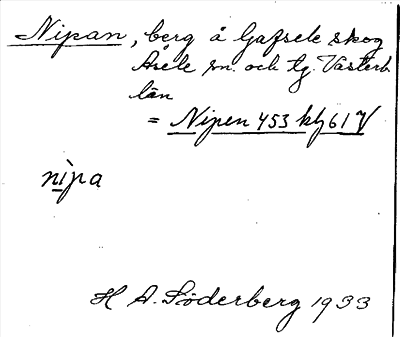 Nipan, berg å Gafsele skog
Åsele sn. och tg. Västerb.
län
= Nipen 453 kbl 61 V
nìpa
H A. Söderberg 1933